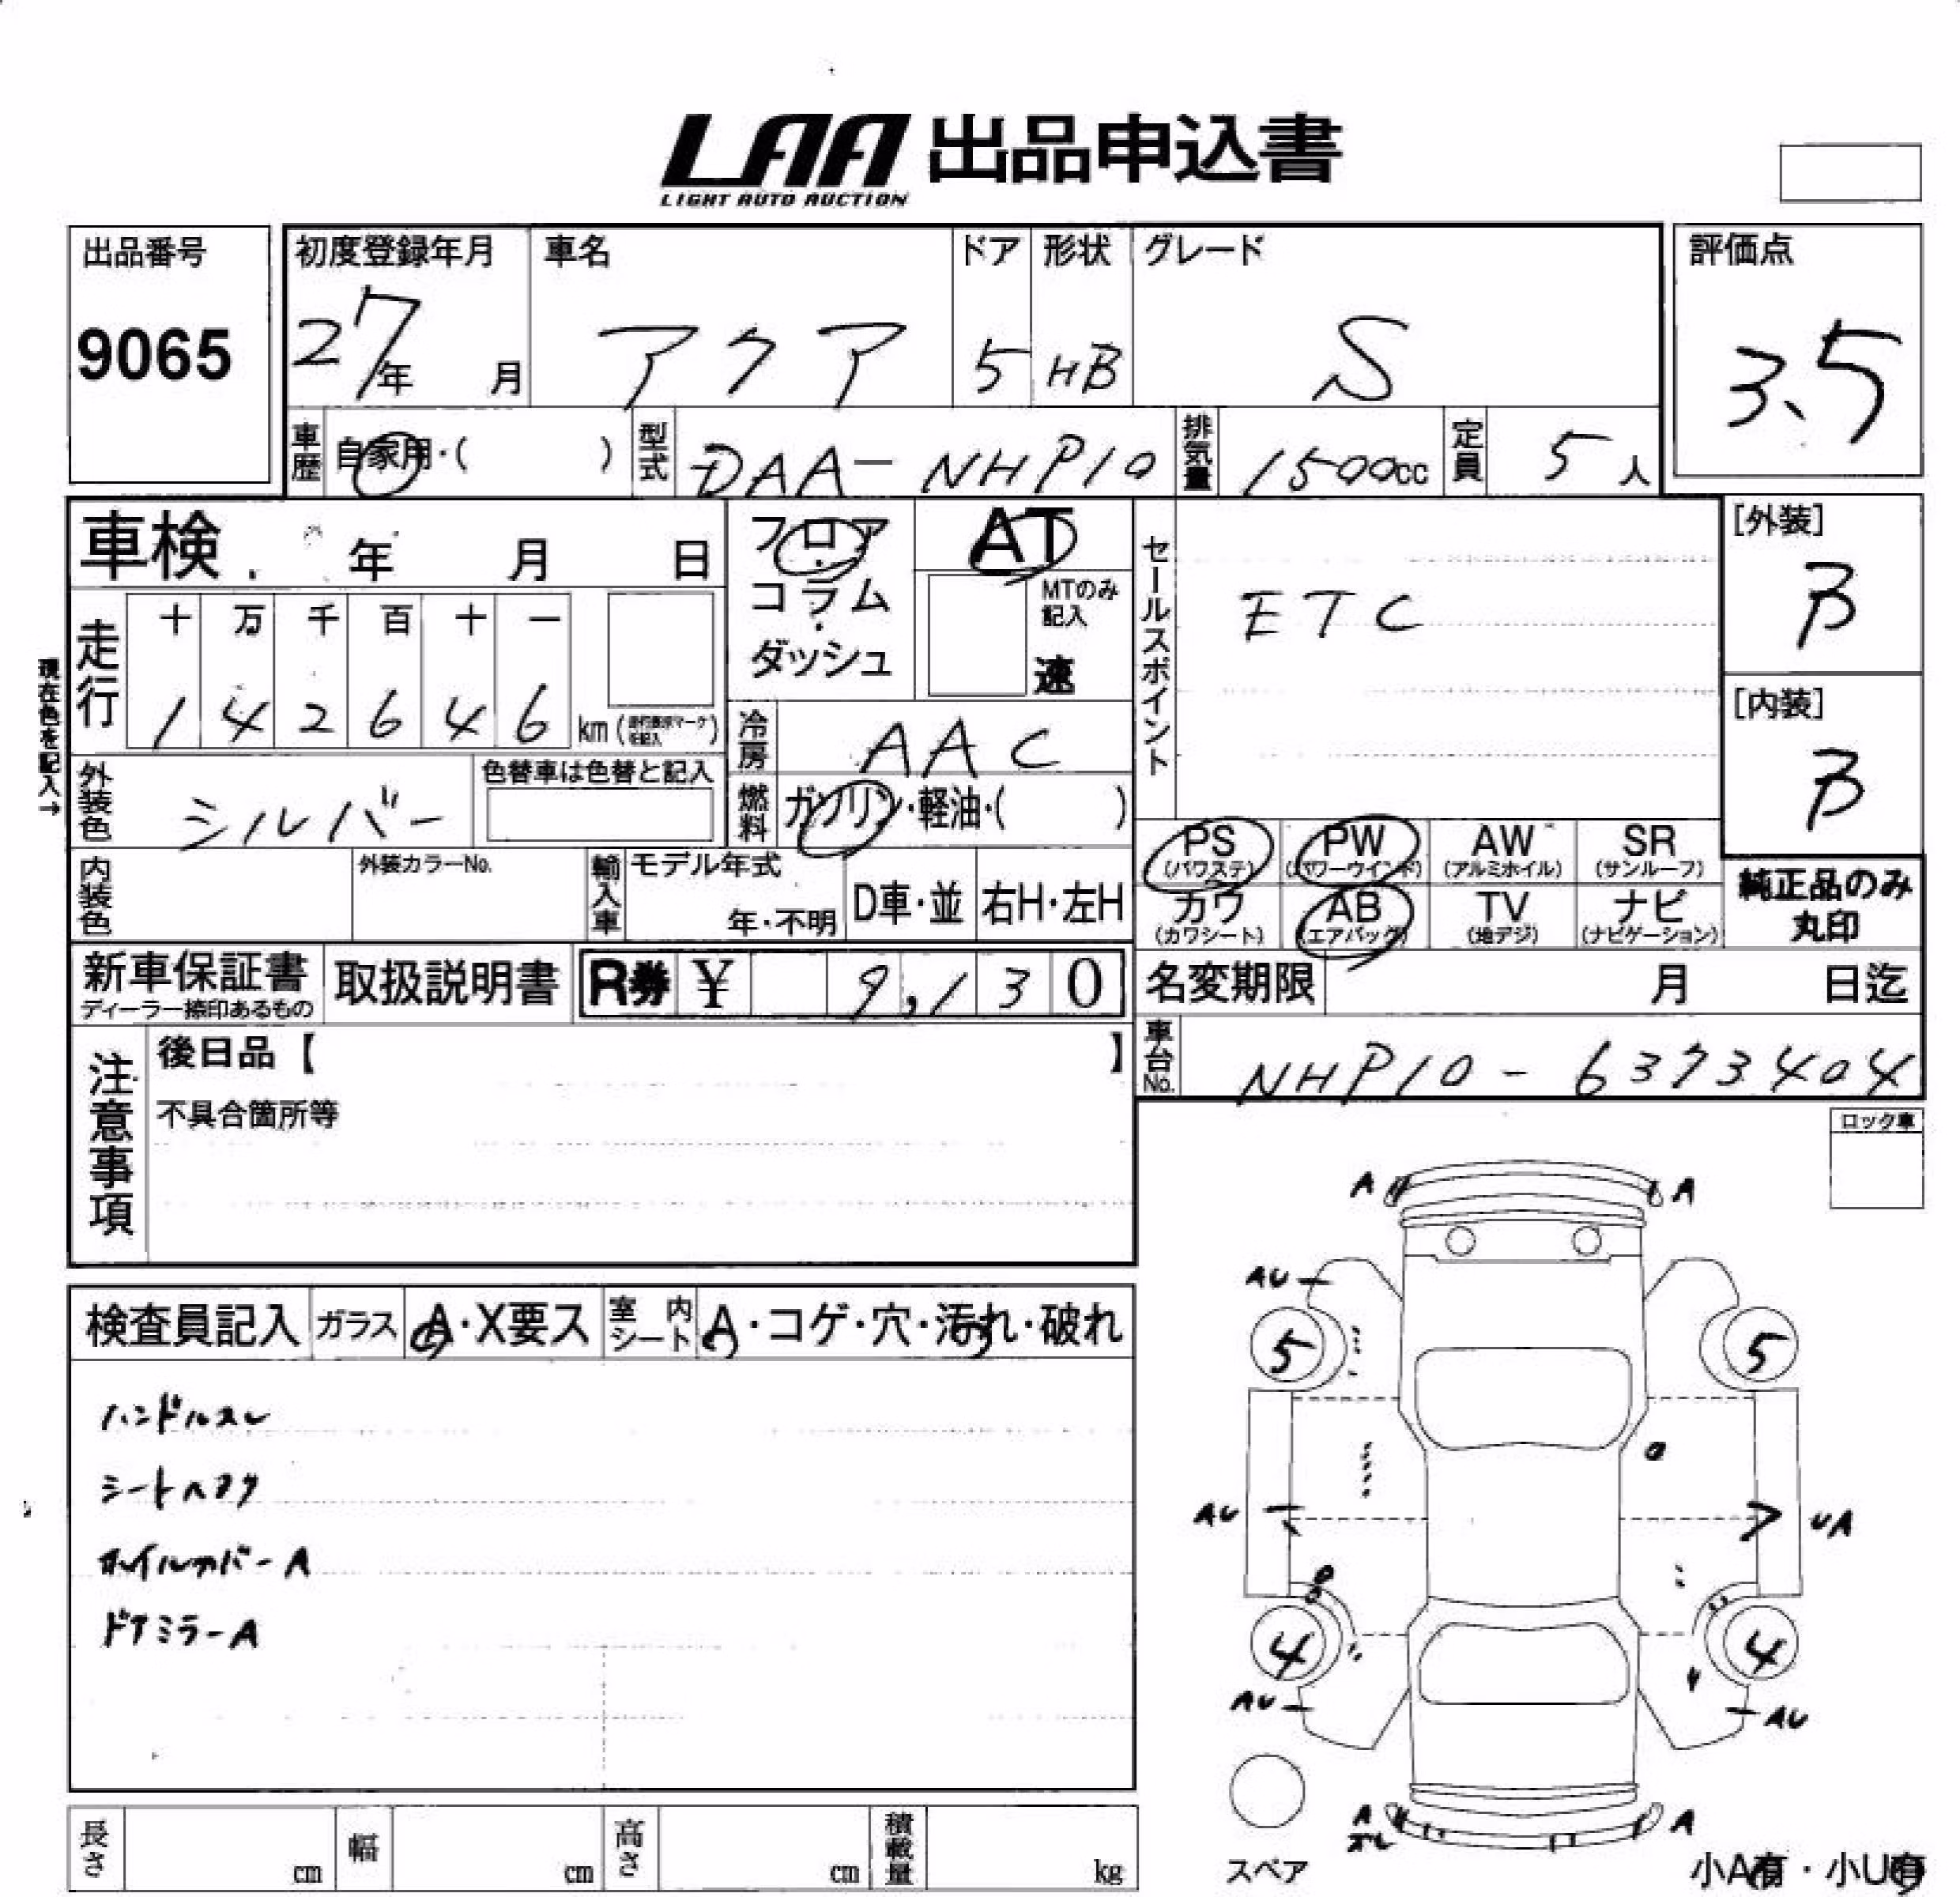 LAA 出品申込書
LIGHT AUTO AUCTION
出品番号
9065
初度登録年月
27年 月
車名
アクア
ドア
5
形状
HB
グレード
S
評価点
3.5
車歴 自家用・( )
型式 DAA-NHP10
排気量 1500cc
定員 5人
車検 年 月 日
フロア・コラム・ダッシュ
AT
MTのみ記入
速
セールスポイント
ETC
[外装]
B
[内装]
B
現在色を記入→
走行
十 万 千 百 十 一
1 4 2 6 4 6 km
冷房 AAC
外装色 シルバー
色替車は色替と記入
燃料 ガソリン・軽油・( )
PS (パワステ)
PW (パワーウインド)
AW (アルミホイル)
SR (サンルーフ)
カワ (カワシート)
AB (エアバッグ)
TV (地デジ)
ナビ (ナビゲーション)
純正品のみ
丸印
内装色
外装カラーNo.
輸入車
モデル年式
年・不明
D車・並
右H・左H
新車保証書
ディーラー捺印あるもの
取扱説明書
R券 ¥ 9,130
名変期限 月 日迄
車台No. NHP10-6373404
注意事項
後日品【 】
不具合箇所等
ロック車
検査員記入
ガラス A・X要ス
室内シート A・コゲ・穴・汚れ・破れ
ハンドルスレ
シートヘタリ
ホイルカバーA
ドアミラーA
A A
AU
5 5
AU UA
4 4
AU AU
A A
スペア
小A有・小U有
長さ cm
幅 cm
高さ cm
積載量 kg